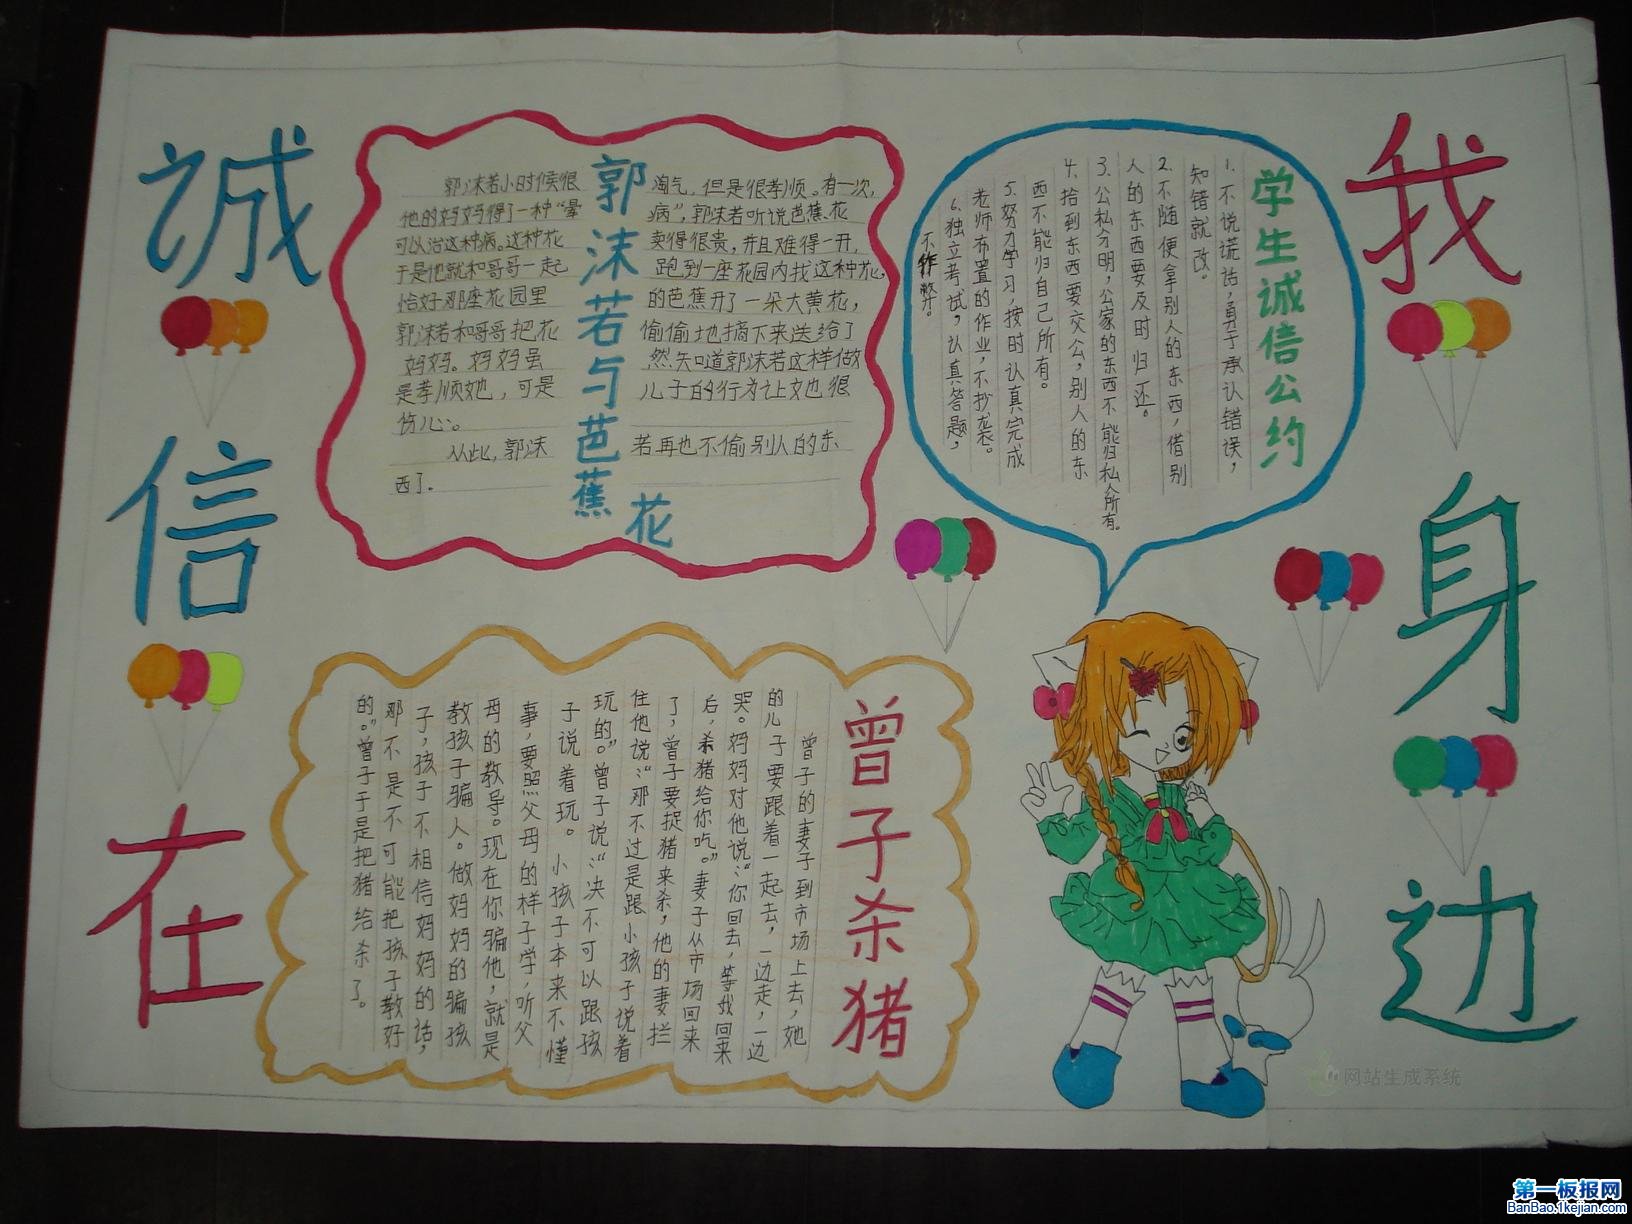 诚
信
在
我
身
边
郭沫若与芭蕉花
郭沫若小时候很淘气，但是很孝顺。有一次，
他的妈妈得了一种“晕病”，郭沫若听说芭蕉花
可以治这种病。这种花卖得很贵，并且难得一开，
于是他就和哥哥一起跑到一座花园内找这种花，
恰好那座花园里的芭蕉开了一朵大黄花，
郭沫若和哥哥把花偷偷地摘下来送给了
妈妈。妈妈虽然知道郭沫若这样做
是孝顺她，可是儿子的行为让她很
伤心。
从此，郭沫若再也不偷别人的东
西了．
学生诚信公约
1．不说谎话，勇于承认错误，
知错就改。
2．不随便拿别人的东西，借别
人的东西要及时归还。
3．公私分明，公家的东西不能归私人所有。
4．拾到东西要交公，别人的东
西不能归自己所有。
5．努力学习，按时认真完成
老师布置的作业，不抄袭。
6．独立考试，认真答题，
不作弊。
曾子杀猪
曾子的妻子到市场上去，她
的儿子要跟着一起去，一边走，一边
哭。妈妈对他说：“你回去，等我回来
后，杀猪给你吃。”妻子从市场回来
了，曾子要捉猪来杀，他的妻拦
住他说：“那不过是跟小孩子说着
玩的。”曾子说：“决不可以跟孩
子说着玩。小孩子本来不懂
事，要照父母的样子学，听父
母的教导。现在你骗他，就是
教孩子骗人。做妈妈的骗孩
子，孩子不相信妈妈的话，
那不是不可能把孩子教好
的。”曾子于是把猪给杀了。
网站生成系统
第一板报网
BanBao.1kejian.com